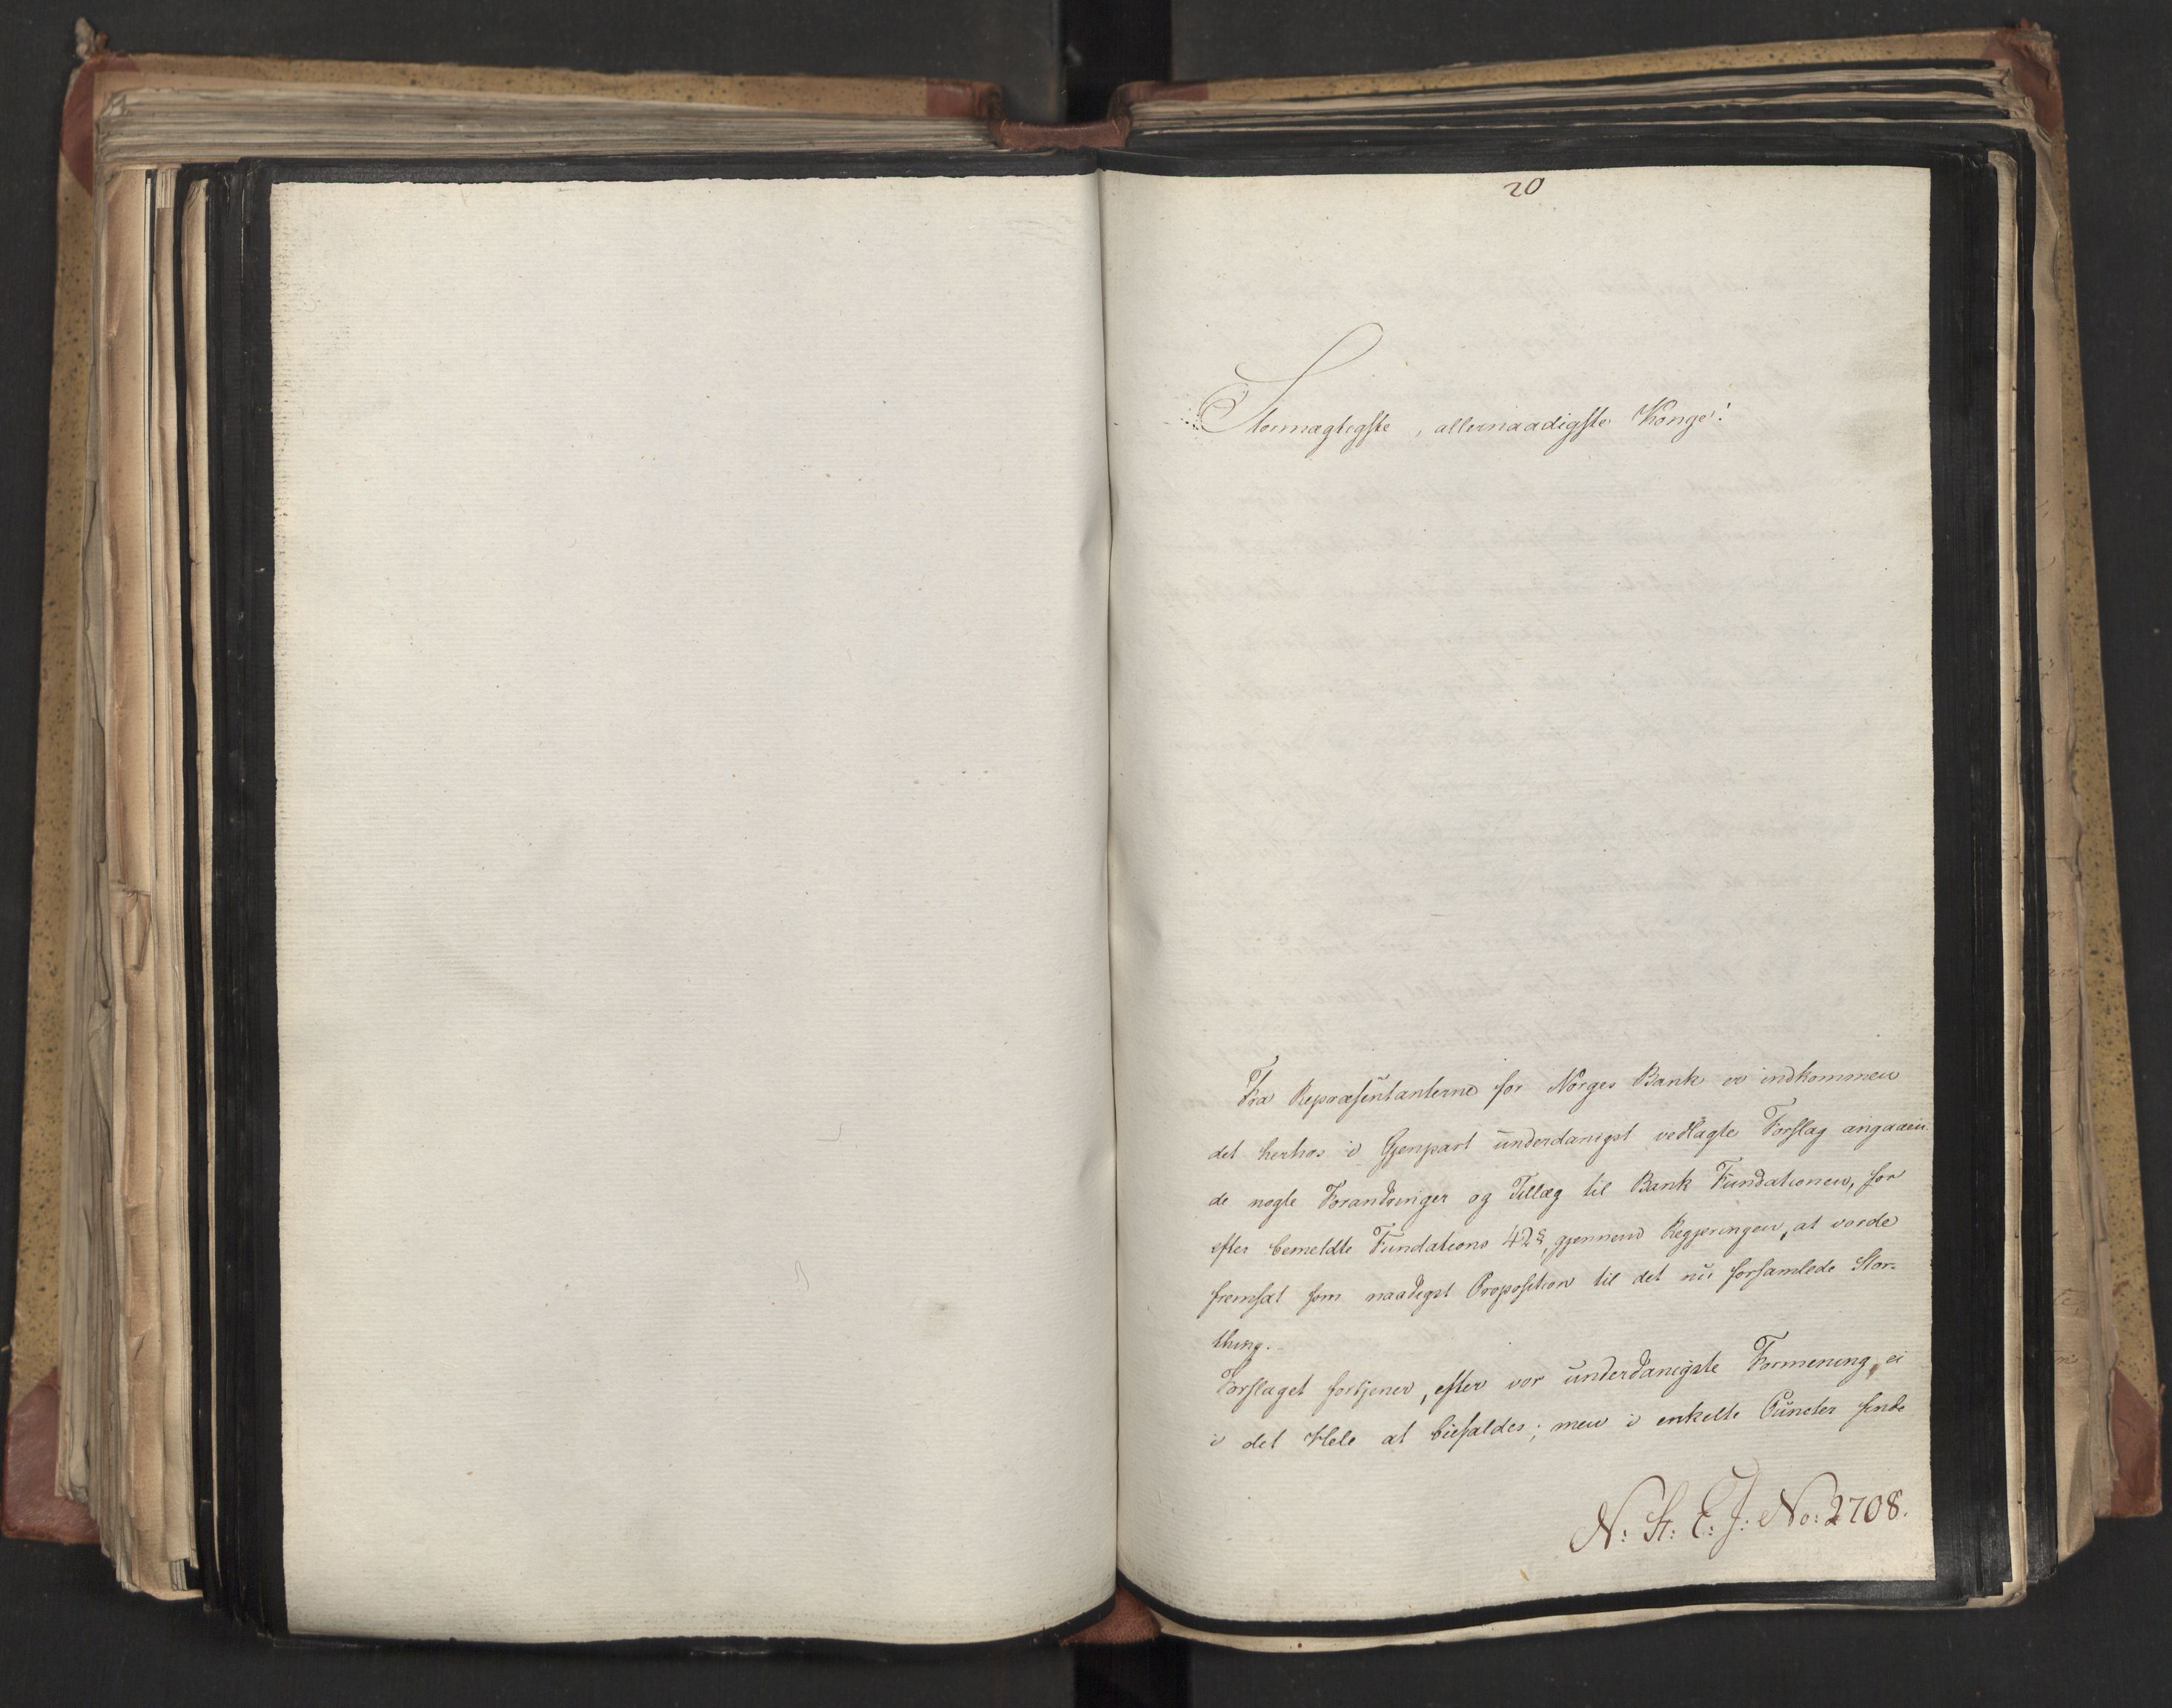 20
Stormægtigste, allernaadigste Konge!
Fra Repræsentanterne for Norges Bank er indkommen
det herhos i Gjenpart underdanigst vedlagte Forslag angaaen-
de nogle Forandringer og Tillæg til Bank Fundationen, for
efter bemeldte Fundations 42 §, gjennem Regjeringen, at vorde
fremsat som naadigst Proposition til det nu forsamlede Stor-
thing.
Forslaget fortjener, efter vor underdanigste Formening, ei
i det Hele at biefaldes; men i enkelte Puncter finde
N: St: E: J: No: 2708.